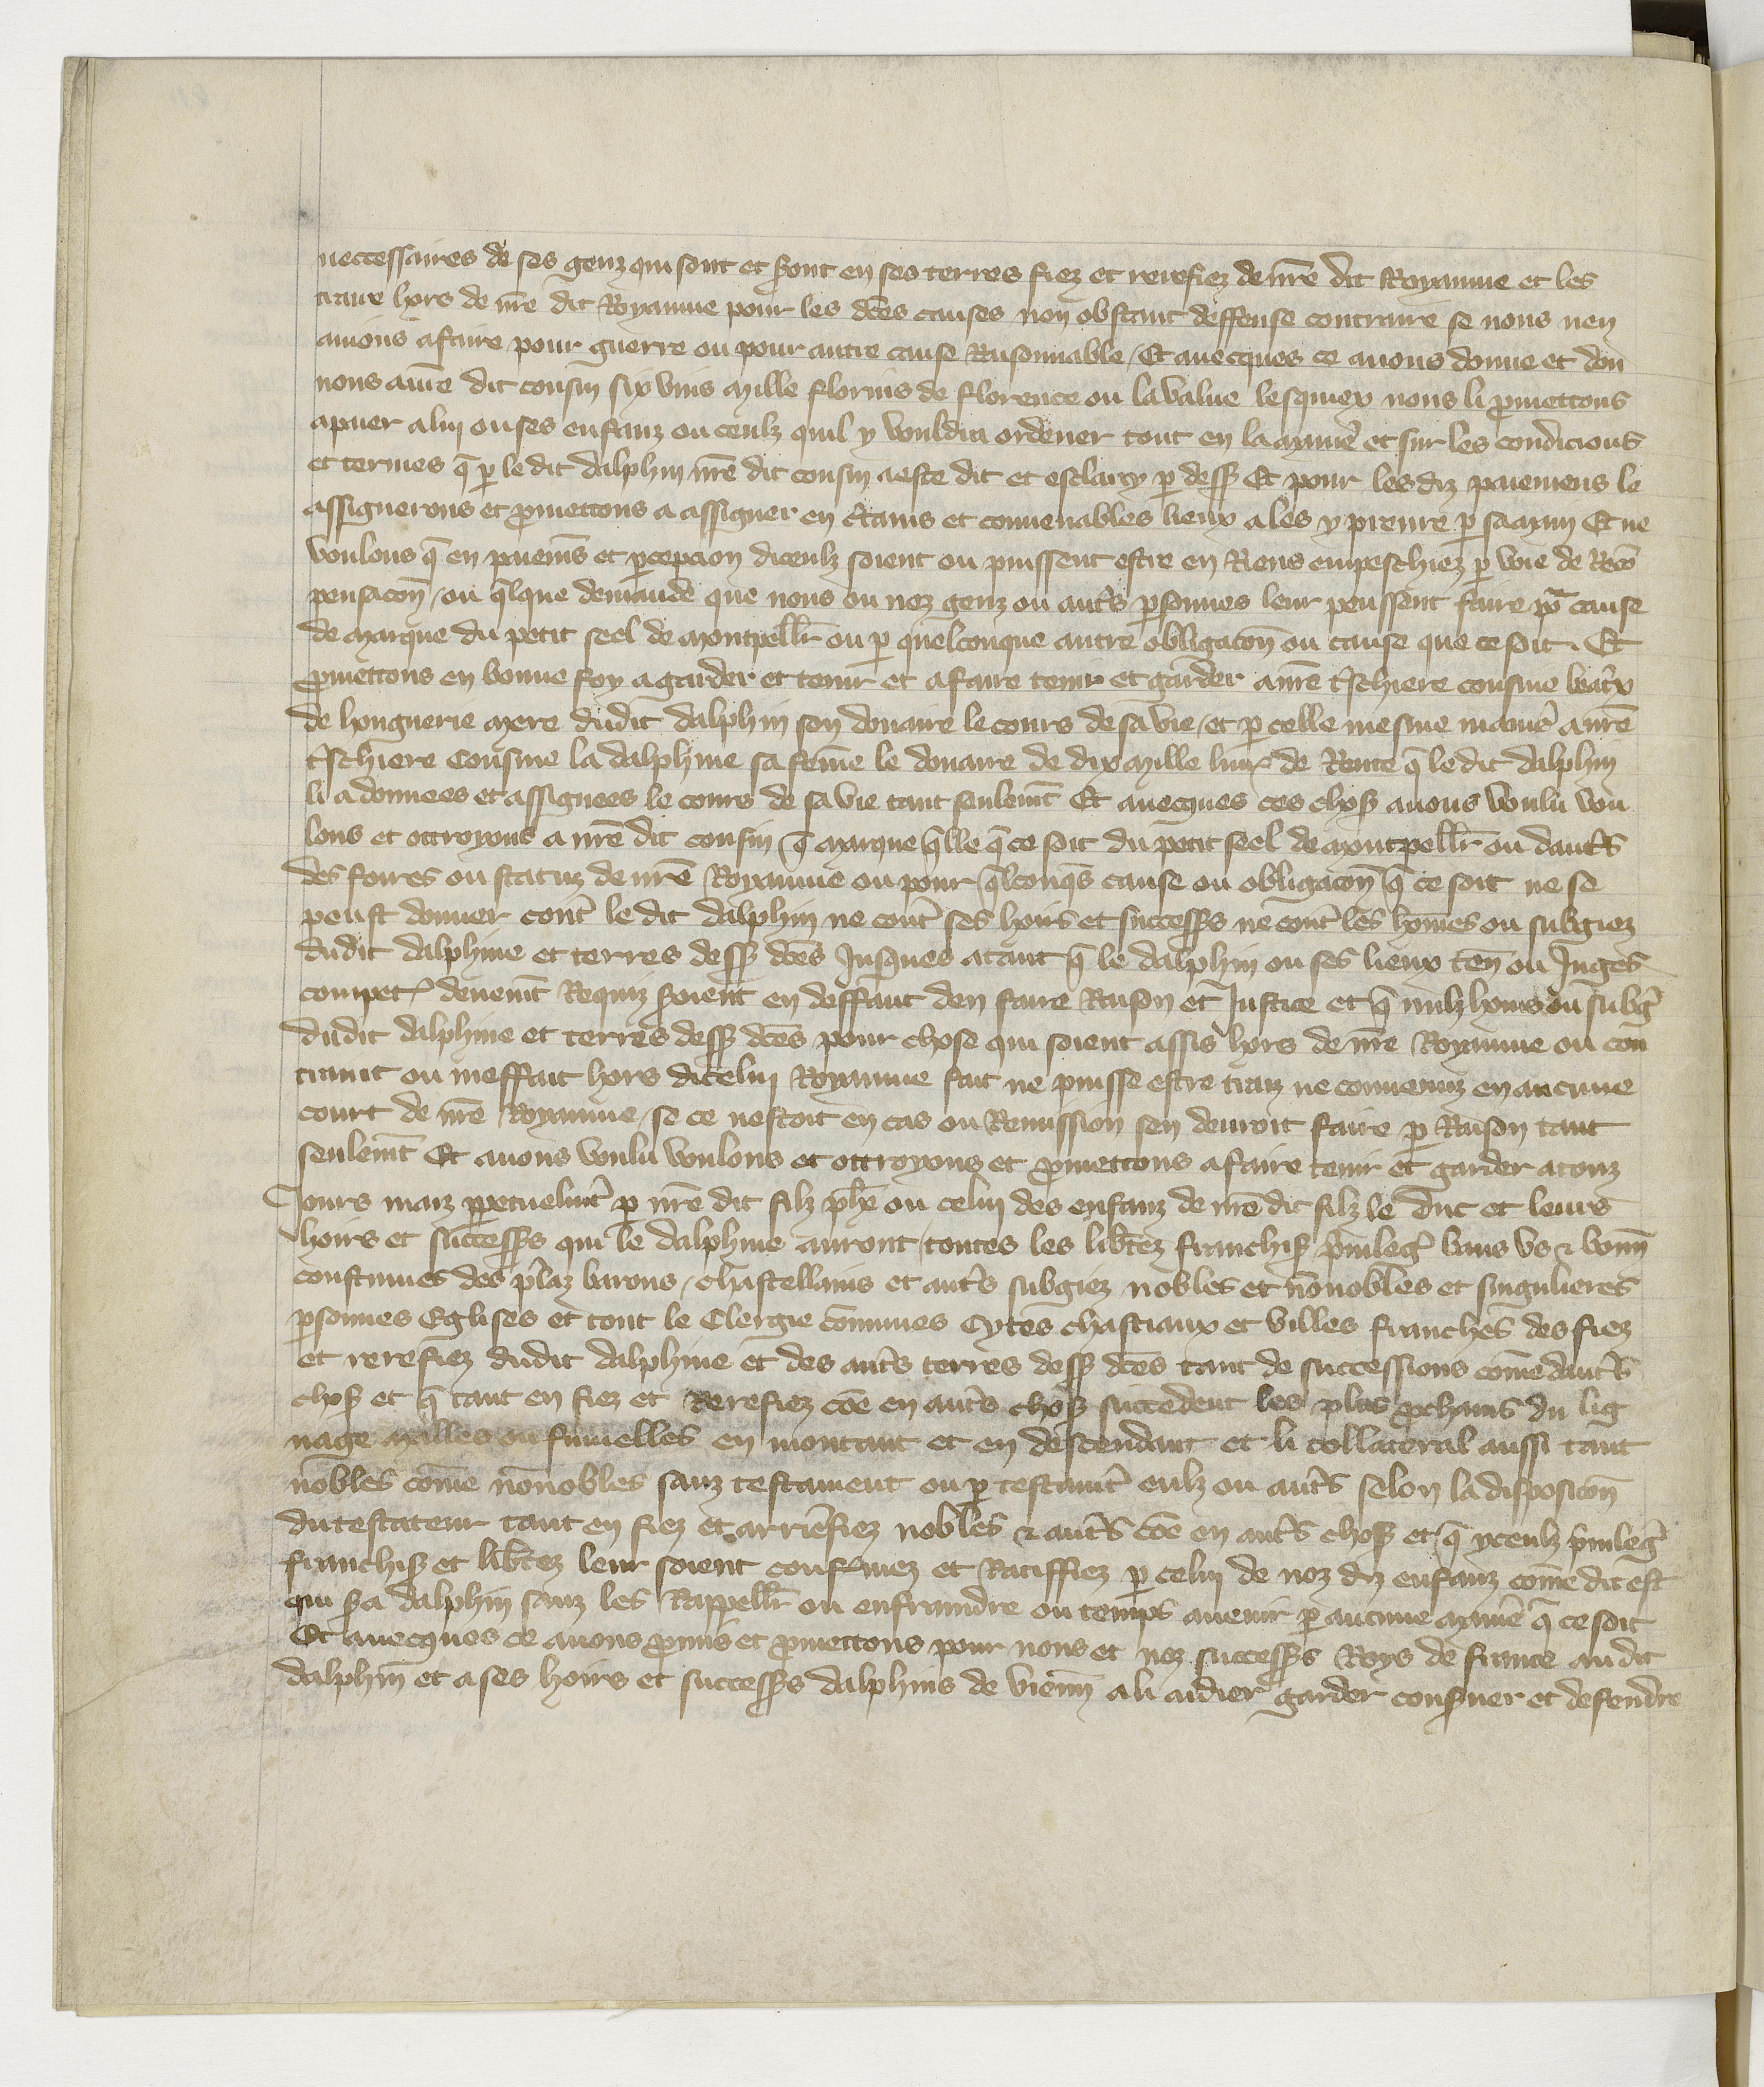 neccessaires de ses genz qui sont et sont en ses terres fiez et rerefiez de nr̄e dit Royaume et les
traire hors de nr̄e dit Royaume pour les dc̄es causes non obstant deffense contraire se nous nen
auions afaire pour guerre ou pour autre cause Raisonnable / Et auecques ce auons donne et don
nons a nr̄e dit cousin six vins mille florins de florence ou la value lesquiex nous li ꝓmettons
apaier a lui ou ses enfanz ou ceulz quil y vouldra ordener tout en la maniē et sur les condicions
et termes q̄ ꝑ le dit dalphin nr̄e dit cousin a este dit et esclarcy ꝑ dess⁹ Et pour les diz paiemens le
assignerons et ꝓmettons a assigner en c̄tains et conuenables lieux a les y prenre ꝑ sa main Et ne
voulons q̄ en paiem̄s et ꝑcepcion diceulz soient ou puissent estre en Riens empeschiez ꝑ voie de Recō
pensacōn / ou q̄lque demande que nous ou noz genz ou aut̄s ꝑsonnes leur peussent faire po᷑ cause
de marque du petit seel de montpell̄r ou ꝑ quelconque autre obligacōn ou cause que ce soit. Et
ꝓmettons en bonne foy a garder et tenir et a faire tenir et garder a nr̄e t̄schiere cousine beat̄x
de honguerie mere dudit dalphin son douaire le cours de sa vie / et ꝑ celle mesme manie᷑ a nr̄e
t̄schiere cousine la dalphine sa fem̄e le douaire de dix mille liur᷑ de Rente q̄ le dit dalphin
li a donnees et assignees le cours de sa vie tant seulem̄t Et auecques ces chos⁹ auons voulu vou
lons et ottroyons a nr̄e dit cousin q̄ marque q̄lle q̄ ce soit du petit seel de montpell̄r ou daut̄s
des foires ou statuz de nr̄e Royaume ou pour q̄lconq̄s cause ou obligacōn q̄ ce soit ne se
peust donner cont̄ le dit dalphin ne cont̄ ses hoirs et success⁹s ne cont̄ les hom̄es ou subgiez
dudit dalphine et terres dess⁹ dc̄es Jusques atant q̄ le dalphin ou ses lieux ten̄ ou Juges
compet᷑ deuem̄t Requiz s̄oient en deffaut den faire Raison et Justice et q̄ nulz homs ou subg᷑
dudit dalphine et terres dess⁹ dc̄es pour chose qui soient assis hors de nr̄e Royaume ou con
traint ou meffait hors dicelui Royaume fait ne puisse estre traiz ne conuenuz en aucune
court de nr̄e Royaume / se ce nestoit en cas ou Remission sen deuroit faire ꝑ Raison tant
seulem̄t Et auons voulu voulons et ottroyons et ꝓmettons a faire tenir et garder a touz
Jours maiz ꝑpetuelmt̄ ꝑ nr̄e dit filz ph̄e ou celui des enfanz de nr̄e dit filz le duc et leurs
hoirs et success⁹s qui le dalphine auront / toutes les lib̄tez franchis⁹ p̄uileg᷑ bans vs ⁊ bonn̄
coustumes des pr̄laz barons / chastellains et aut̄s subgiez nobles et nōnobles et singulieres
ꝑsonnes Eglises et tout le Clergie cōmunes Cytes chastiaux et villes franches des fiez
et rerefiez dudit dalphine et des aut̄s terres dess⁹ dc̄es tant de successions com̄e daut̄s
chos⁹ et q̄ tant en fiez et Rerefiez cōe en aut̄s chos⁹ succedent les plus ꝓchains du lig
nage malles ou fumelles en montant et en descendant et li collateral aussi tant
nobles com̄e nōnobles sanz testament ou ꝑ testamt̄ eulz ou aut̄s selon la disposicōn
du testateur tant en fiez et arrierefiez nobles ⁊ aut̄s cōe en aut̄s chos⁹ et q̄ yceulz p̄uileg᷑
franchis⁹ et lib̄tez leur soient conf᷑mez et Ratiffiez ꝑ celui de noz diz enfanz com̄e dit est
qui s̄a dalphin sanz les Rappell̄r ou enfraindre ou temps auenir ꝑ aucune maniē q̄ ce soit
Et auecques ce auons ꝓmis et ꝓmettons pour nous et noz success⁹s Roys de france au dit
dalphin et a ses hoirs et success⁹s dalphins de vienn̄ a li aidier garder cons̄uer et defendre